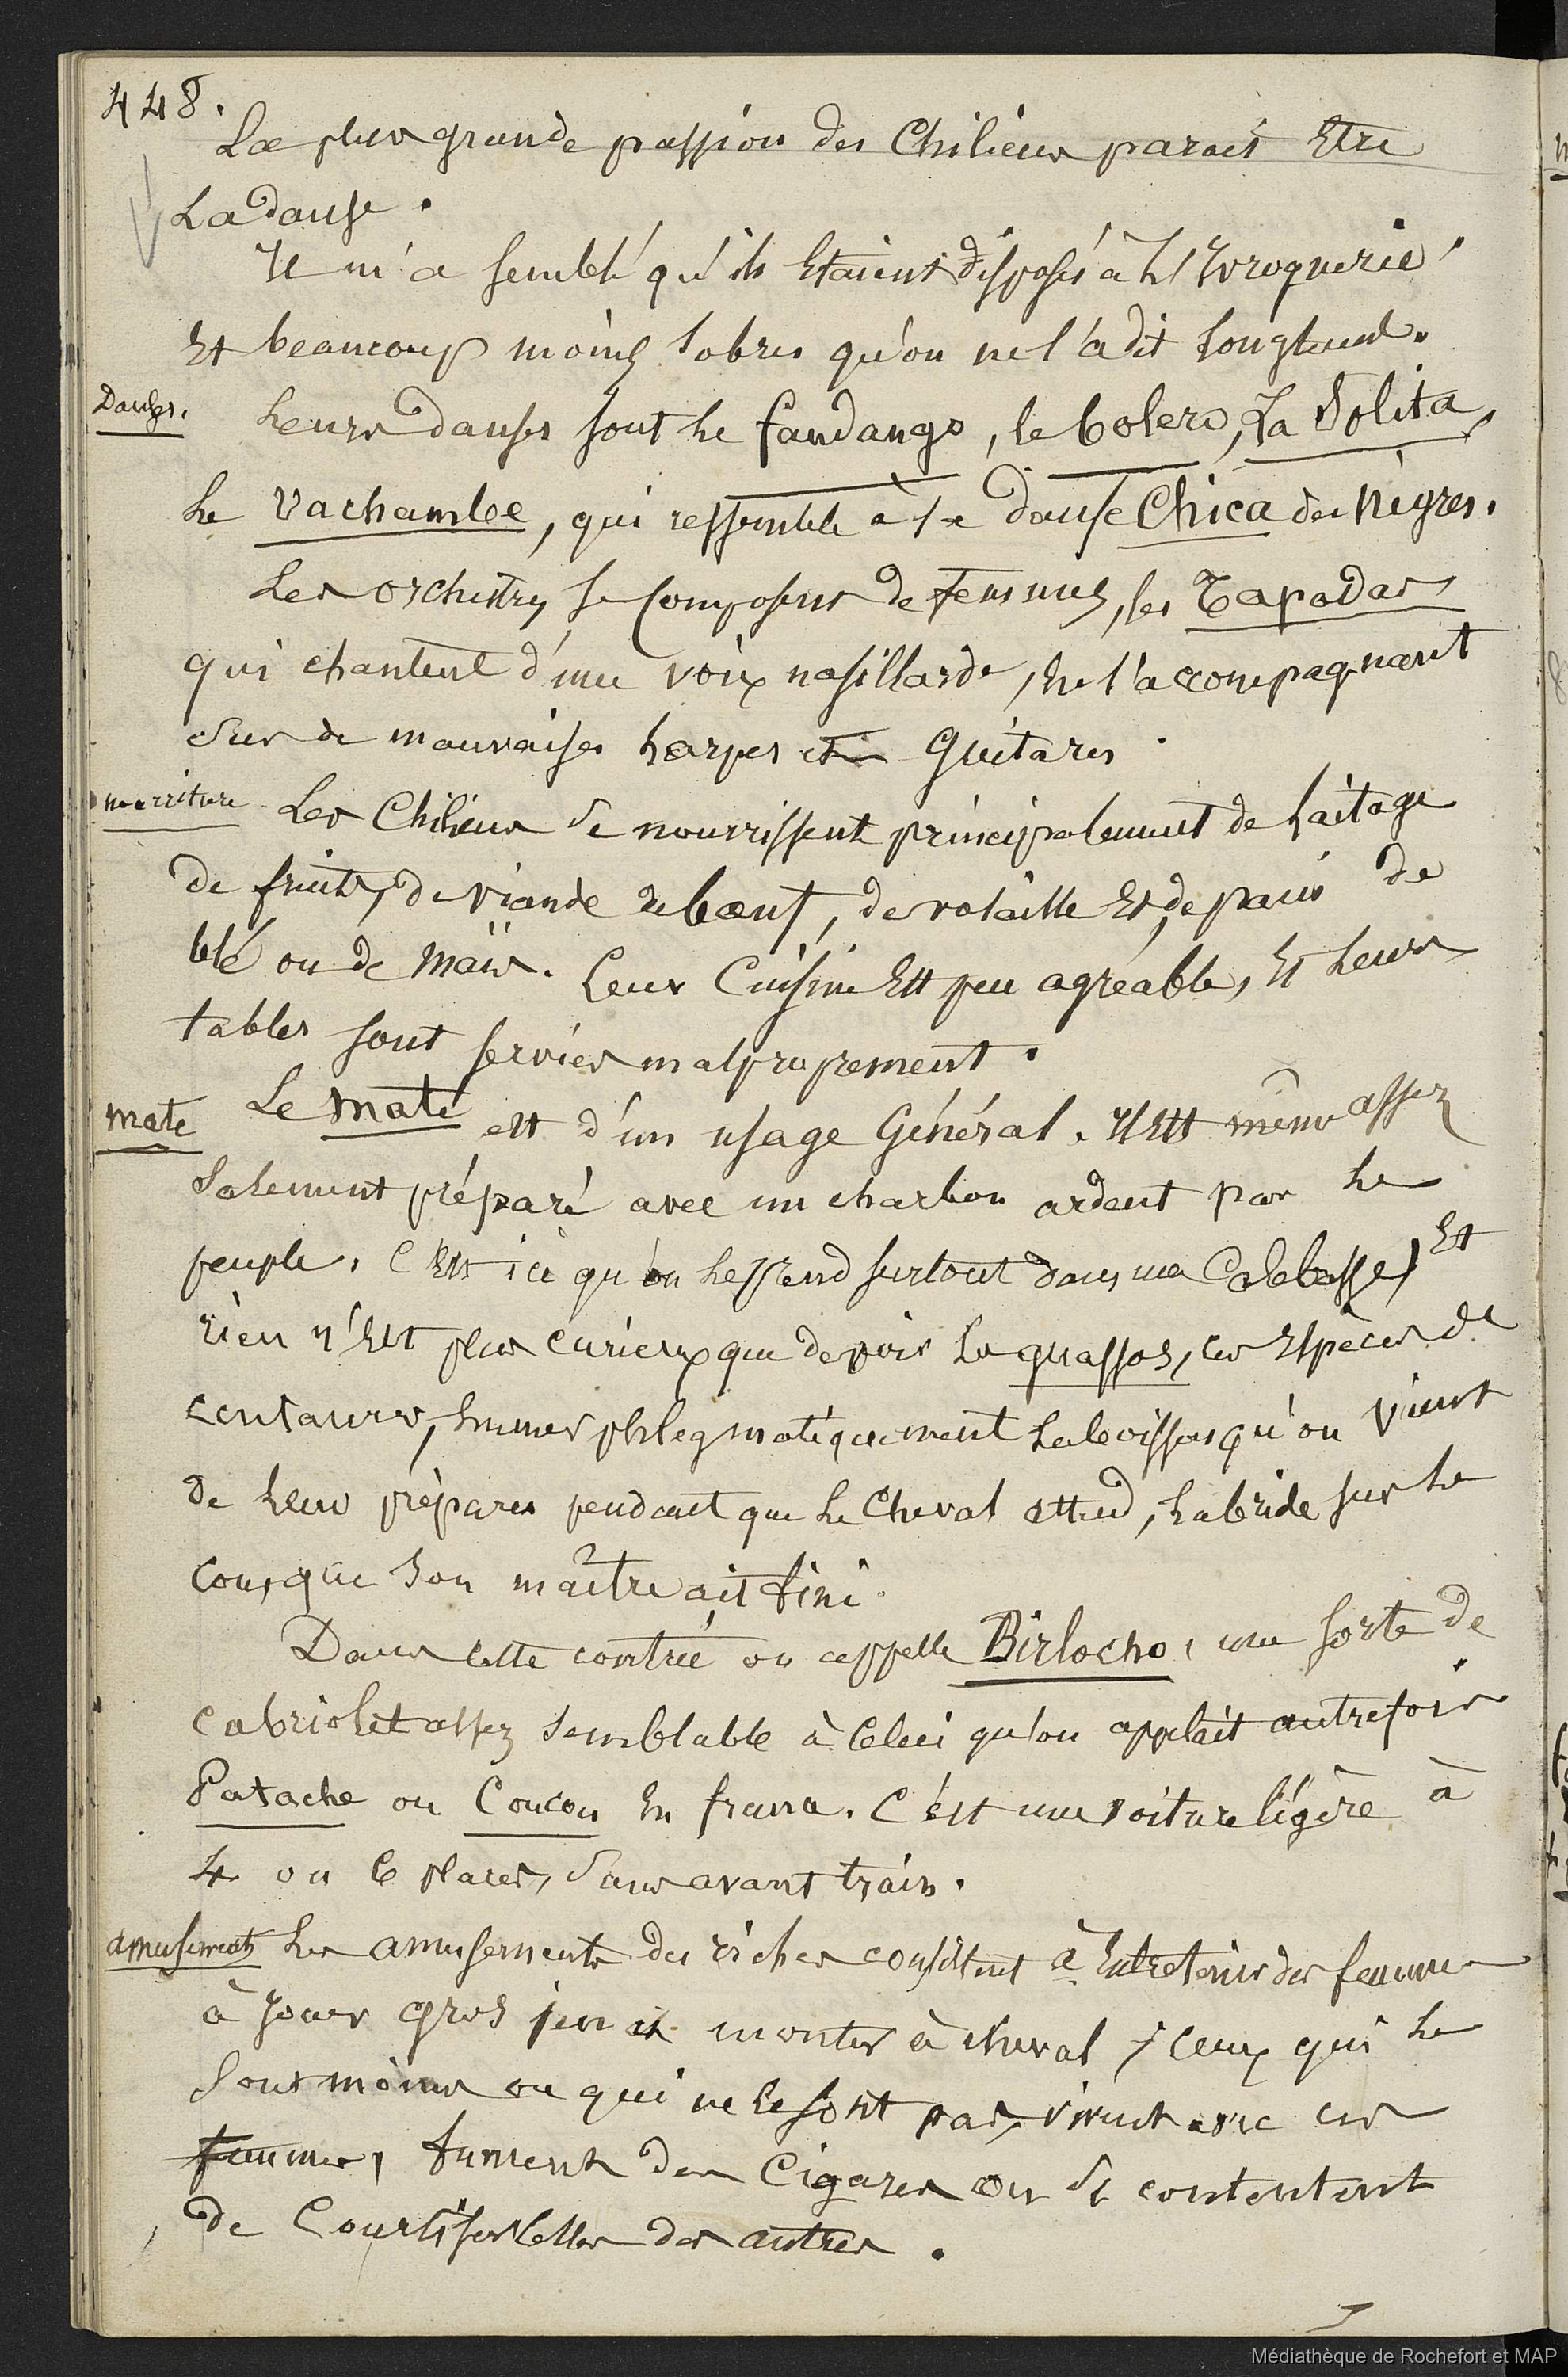 448.
La plus grande passion des Chiliens parait Etre
La danse.
Il m'a semblé qu'ils Etaient disposés à L'Ivrognerie
Et beaucoup moins sobres qu'on ne l'a dit longtems.
Danses. Leurs danses sont le fandango, le bolero, La Solita,
Le Vachambe, qui ressemble à la danse Chica des Nègres.
Les orchestres se composent de femmes, les Tapadas
qui chantent d'une voix nasillarde, en s'accompagnant
sur de mauvaises harpes et Guitares.
nourriture Les Chiliens se nourrissent principalement de Laitage
de fruits, de viande de boeuf, de volaille Et de pain de
blé ou de Maïs. Leur Cuisine Est peu agréable, Et Leurs
tables sont servies malproprement.
mate Le maté est d'un usage Général. Il Est même assez
Salement préparé avec un charbon ardent par Le
peuple. C'Est ici qu'on Le prend surtout dans une Calebasse, Et
rien n'Est plus curieux que de voir Les guassos, ces Espèces de
centaures, humer phlegmatiquement La boisson qu'on vient
de Leur préparer pendant que Le Cheval attend, La bride sur Le
cou, que Son maître ait fini.
Dans cette contrée on appelle Birlocho, une sorte de
cabriolet assez Semblable à Celui qu'on appelait autrefois
Patache ou Coucou En france. C'est une voiture légère à
4 ou 6 places, Sans avant train.
amusements Les amusements des riches consistent à Entretenir des femmes
à Jouer gros jeu et monter à cheval; Ceux qui Le
Sont moins ou qui ne Le sont pas, vivent avec ces
femmes, fument des Cigares ou se contentent
de Courtiser Celles des autres.
Médiathèque de Rochefort et MAP